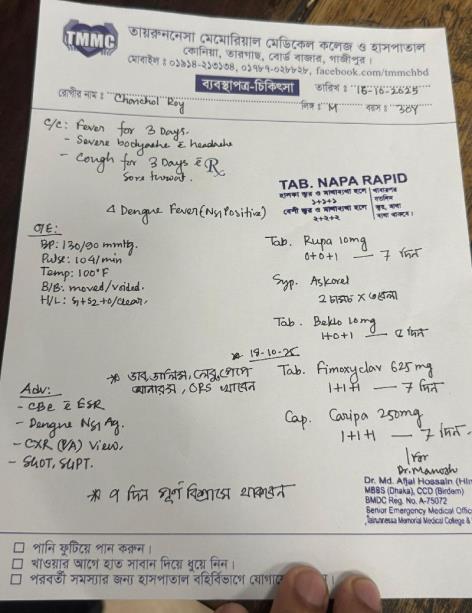 TMMC
তায়রুননেসা মেমোরিয়াল মেডিকেল কলেজ ও হাসপাতাল
কোনিয়া, তারগাছ, বোর্ড বাজার, গাজীপুর।
মোবাইল : ০১৯১৪-২১৩১৩৪, ০১৭৮৭-০২৮৮২৮, facebook.com/tmmchbd
ব্যবস্থাপত্র-চিকিৎসা
তারিখ : 16-10-2025
রোগীর নাম : Chonchol Roy লিঙ্গ : M বয়স : 30Y
C/C: Fever for 3 Days.
- Severe bodyache & headache
- Cough for 3 Days &
Sore throat.
Rx
Δ Dengue Fever (NS1 Positive)
TAB. NAPA RAPID
হালকা জ্বর ও মাথাব্যথা হলে
১+১+১
বেশী জ্বর ও মাথাব্যথা হলে
২+২+২
O/E:
BP: 130/90 mmHg.
Pulse: 104/min
Temp: 100°F
B/B: moved/voided.
H/L: S1+S2+0/clear.
Tab. Rupa 10mg
0+0+1 — 7 দিন
Syp. Askorel
2 চামচ X ৩বেলা
Tab. Beklo 10mg
1+0+1 —
18-10-25
ORS খাবেন
Tab. Fimoxyclav 625mg
1+1+1 — 7 দিন
Cap. Caripa 250mg
1+1+1 — 7 দিন
Adv:
- CBC & ESR
- Dengue NS1 Ag.
- CXR (P/A) View.
- SGOT, SGPT.
৭ দিন পূর্ণ বিশ্রামে থাকবেন
for
Dr. Manosh
Dr. Md. Afjal Hossain
MBBS (Dhaka), CCD (Birdem)
BMDC Reg. No. A-75072
Senior Emergency Medical Offic
Tairunnessa Memorial Medical College &
পানি ফুটিয়ে পান করুন।
খাওয়ার আগে হাত সাবান দিয়ে ধুয়ে নিন।
পরবর্তী সমস্যার জন্য হাসপাতাল বহির্বিভাগে